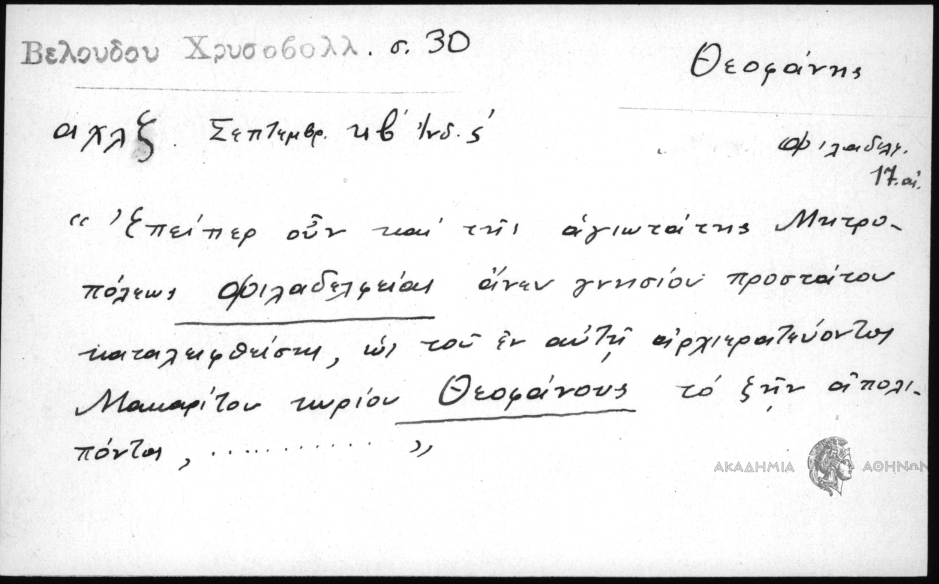 Βελουδου Χρυσοβολλ. σ. 30
Θεοφάνης
αχλζ. Σεπτεμβρ. κβ' Ἰνδ. ς'
Φιλαδελφ.
17. αἰ.
“ Ἐπείπερ οὖν καὶ τῆς ἁγιωτάτης Μητρο-
πόλεως Φιλαδελφείας ἄνευ γνησίου προστάτου
καταλειφθείσης, ὡς τοῦ ἐν αὐτῇ ἀρχιερατεύοντος
Μακαρίτου κυρίου Θεοφάνους τὸ ζῆν ἀπολι-
πόντος, .......... ”
ΑΚΑΔΗΜΙΑ ΑΘΗΝΩΝ